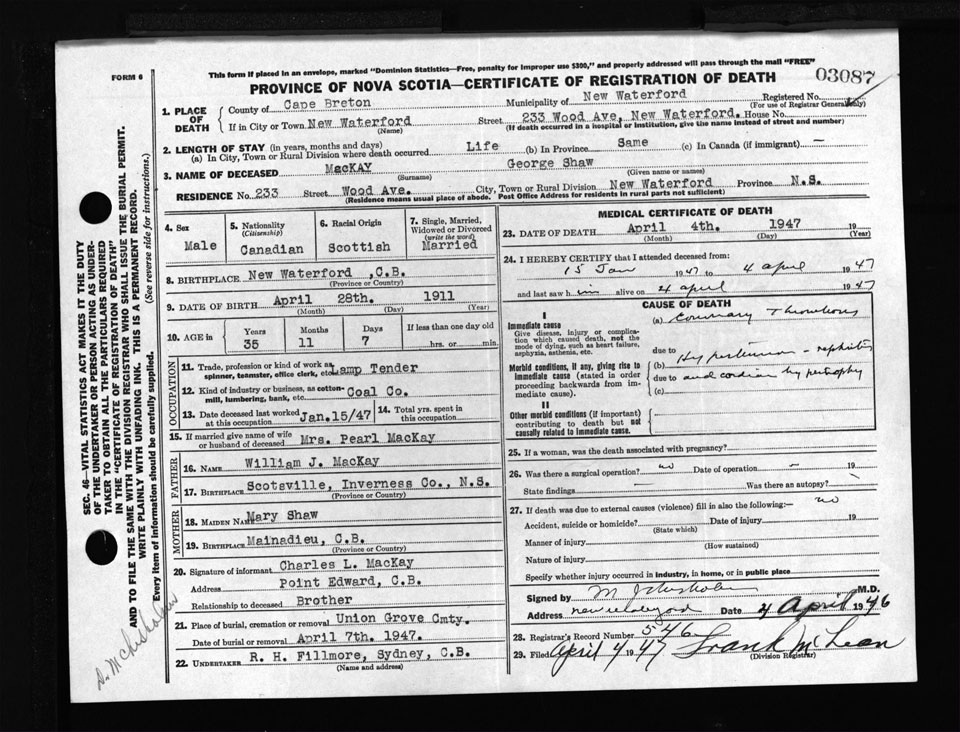 This form if placed in an envelope, marked "Dominion Statistics—Free, penalty for improper use $300," and properly addressed will pass through the mail "FREE"
FORM 6
PROVINCE OF NOVA SCOTIA—CERTIFICATE OF REGISTRATION OF DEATH
03087
1. PLACE OF DEATH
County of Cape Breton Municipality of New Waterford Registered No.
(For use of Registrar Generally)
If in City or Town New Waterford Street 233 Wood Ave, New Waterford. House No.
(Name) (If death occurred in a hospital or institution, give the name instead of street and number)
2. LENGTH OF STAY (in years, months and days)
(a) In City, Town or Rural Division where death occurred Life (b) In Province Same (c) In Canada (if immigrant) —
3. NAME OF DECEASED MacKAY George Shaw
(Surname) (Given name or names)
RESIDENCE No. 233 Street Wood Ave. City, Town or Rural Division New Waterford Province N.S.
(Residence means usual place of abode. Post Office Address for residents in rural parts not sufficient)
4. Sex
Male
5. Nationality
(Citizenship)
Canadian
6. Racial Origin
Scottish
7. Single, Married, Widowed or Divorced
(write the word)
Married
8. BIRTHPLACE New Waterford ,C.B.
(Province or Country)
9. DATE OF BIRTH April 28th. 1911
(Month) (Day) (Year)
10. AGE in
Years Months Days If less than one day old
35 11 7 hrs. or min.
OCCUPATION
11. Trade, profession or kind of work as spinner, teamster, office clerk, etc. Lamp Tender
12. Kind of industry or business, as cotton-mill, lumbering, bank, etc. Coal Co.
13. Date deceased last worked at this occupation Jan.15/47
14. Total yrs. spent in this occupation
15. If married give name of wife or husband of deceased Mrs. Pearl MacKay
FATHER
16. NAME William J. MacKay
17. BIRTHPLACE Scotsville, Inverness Co., N.S.
(Province or Country)
MOTHER
18. MAIDEN NAME Mary Shaw
19. BIRTHPLACE Mainadieu, C.B.
(Province or Country)
20. Signature of informant Charles L. MacKay
Address Point Edward, C.B.
Relationship to deceased Brother
21. Place of burial, cremation or removal Union Grove Cmty.
Date of burial or removal April 7th. 1947.
22. UNDERTAKER R. H. Fillmore, Sydney, C.B.
(Name and address)
MEDICAL CERTIFICATE OF DEATH
23. DATE OF DEATH April 4th. 1947
(Month) (Day) (Year)
24. I HEREBY CERTIFY that I attended deceased from:
15 Jan 1947 to 4 april 1947
and last saw him alive on 4 april 1947
CAUSE OF DEATH
I
Immediate cause
Give disease, injury or complication which caused death, not the mode of dying, such as heart failure, asphyxia, asthenia, etc.
(a) Coronary Thrombosis
due to
Morbid conditions, if any, giving rise to immediate cause (stated in order proceeding backwards from immediate cause).
(b) Hypertension - nephritis
due to and cardiac hypertrophy
(c)
II
Other morbid conditions (if important) contributing to death but not causally related to immediate cause.
25. If a woman, was the death associated with pregnancy?
26. Was there a surgical operation? no Date of operation — 19
State findings Was there an autopsy?
27. If death was due to external causes (violence) fill in also the following:— no
Accident, suicide or homicide? Date of injury 19
(State which)
Manner of injury
(How sustained)
Nature of injury
Specify whether injury occurred in industry, in home, or in public place
Signed by M.D.
Address Date 4 April 1946
28. Registrar's Record Number 546
29. Filed April 4 1947 Frank McLean
(Division Registrar)
SEC. 46—VITAL STATISTICS ACT MAKES IT THE DUTY
OF THE UNDERTAKER OR PERSON ACTING AS UNDER-
TAKER TO OBTAIN ALL THE PARTICULARS REQUIRED
IN THE "CERTIFICATE OF REGISTRATION OF DEATH"
AND TO FILE THE SAME WITH THE DIVISION REGISTRAR WHO SHALL ISSUE THE BURIAL PERMIT.
WRITE PLAINLY WITH UNFADING INK. THIS IS A PERMANENT RECORD.
Every item of information should be carefully supplied. (See reverse side for instructions.)
Dr McChisholm